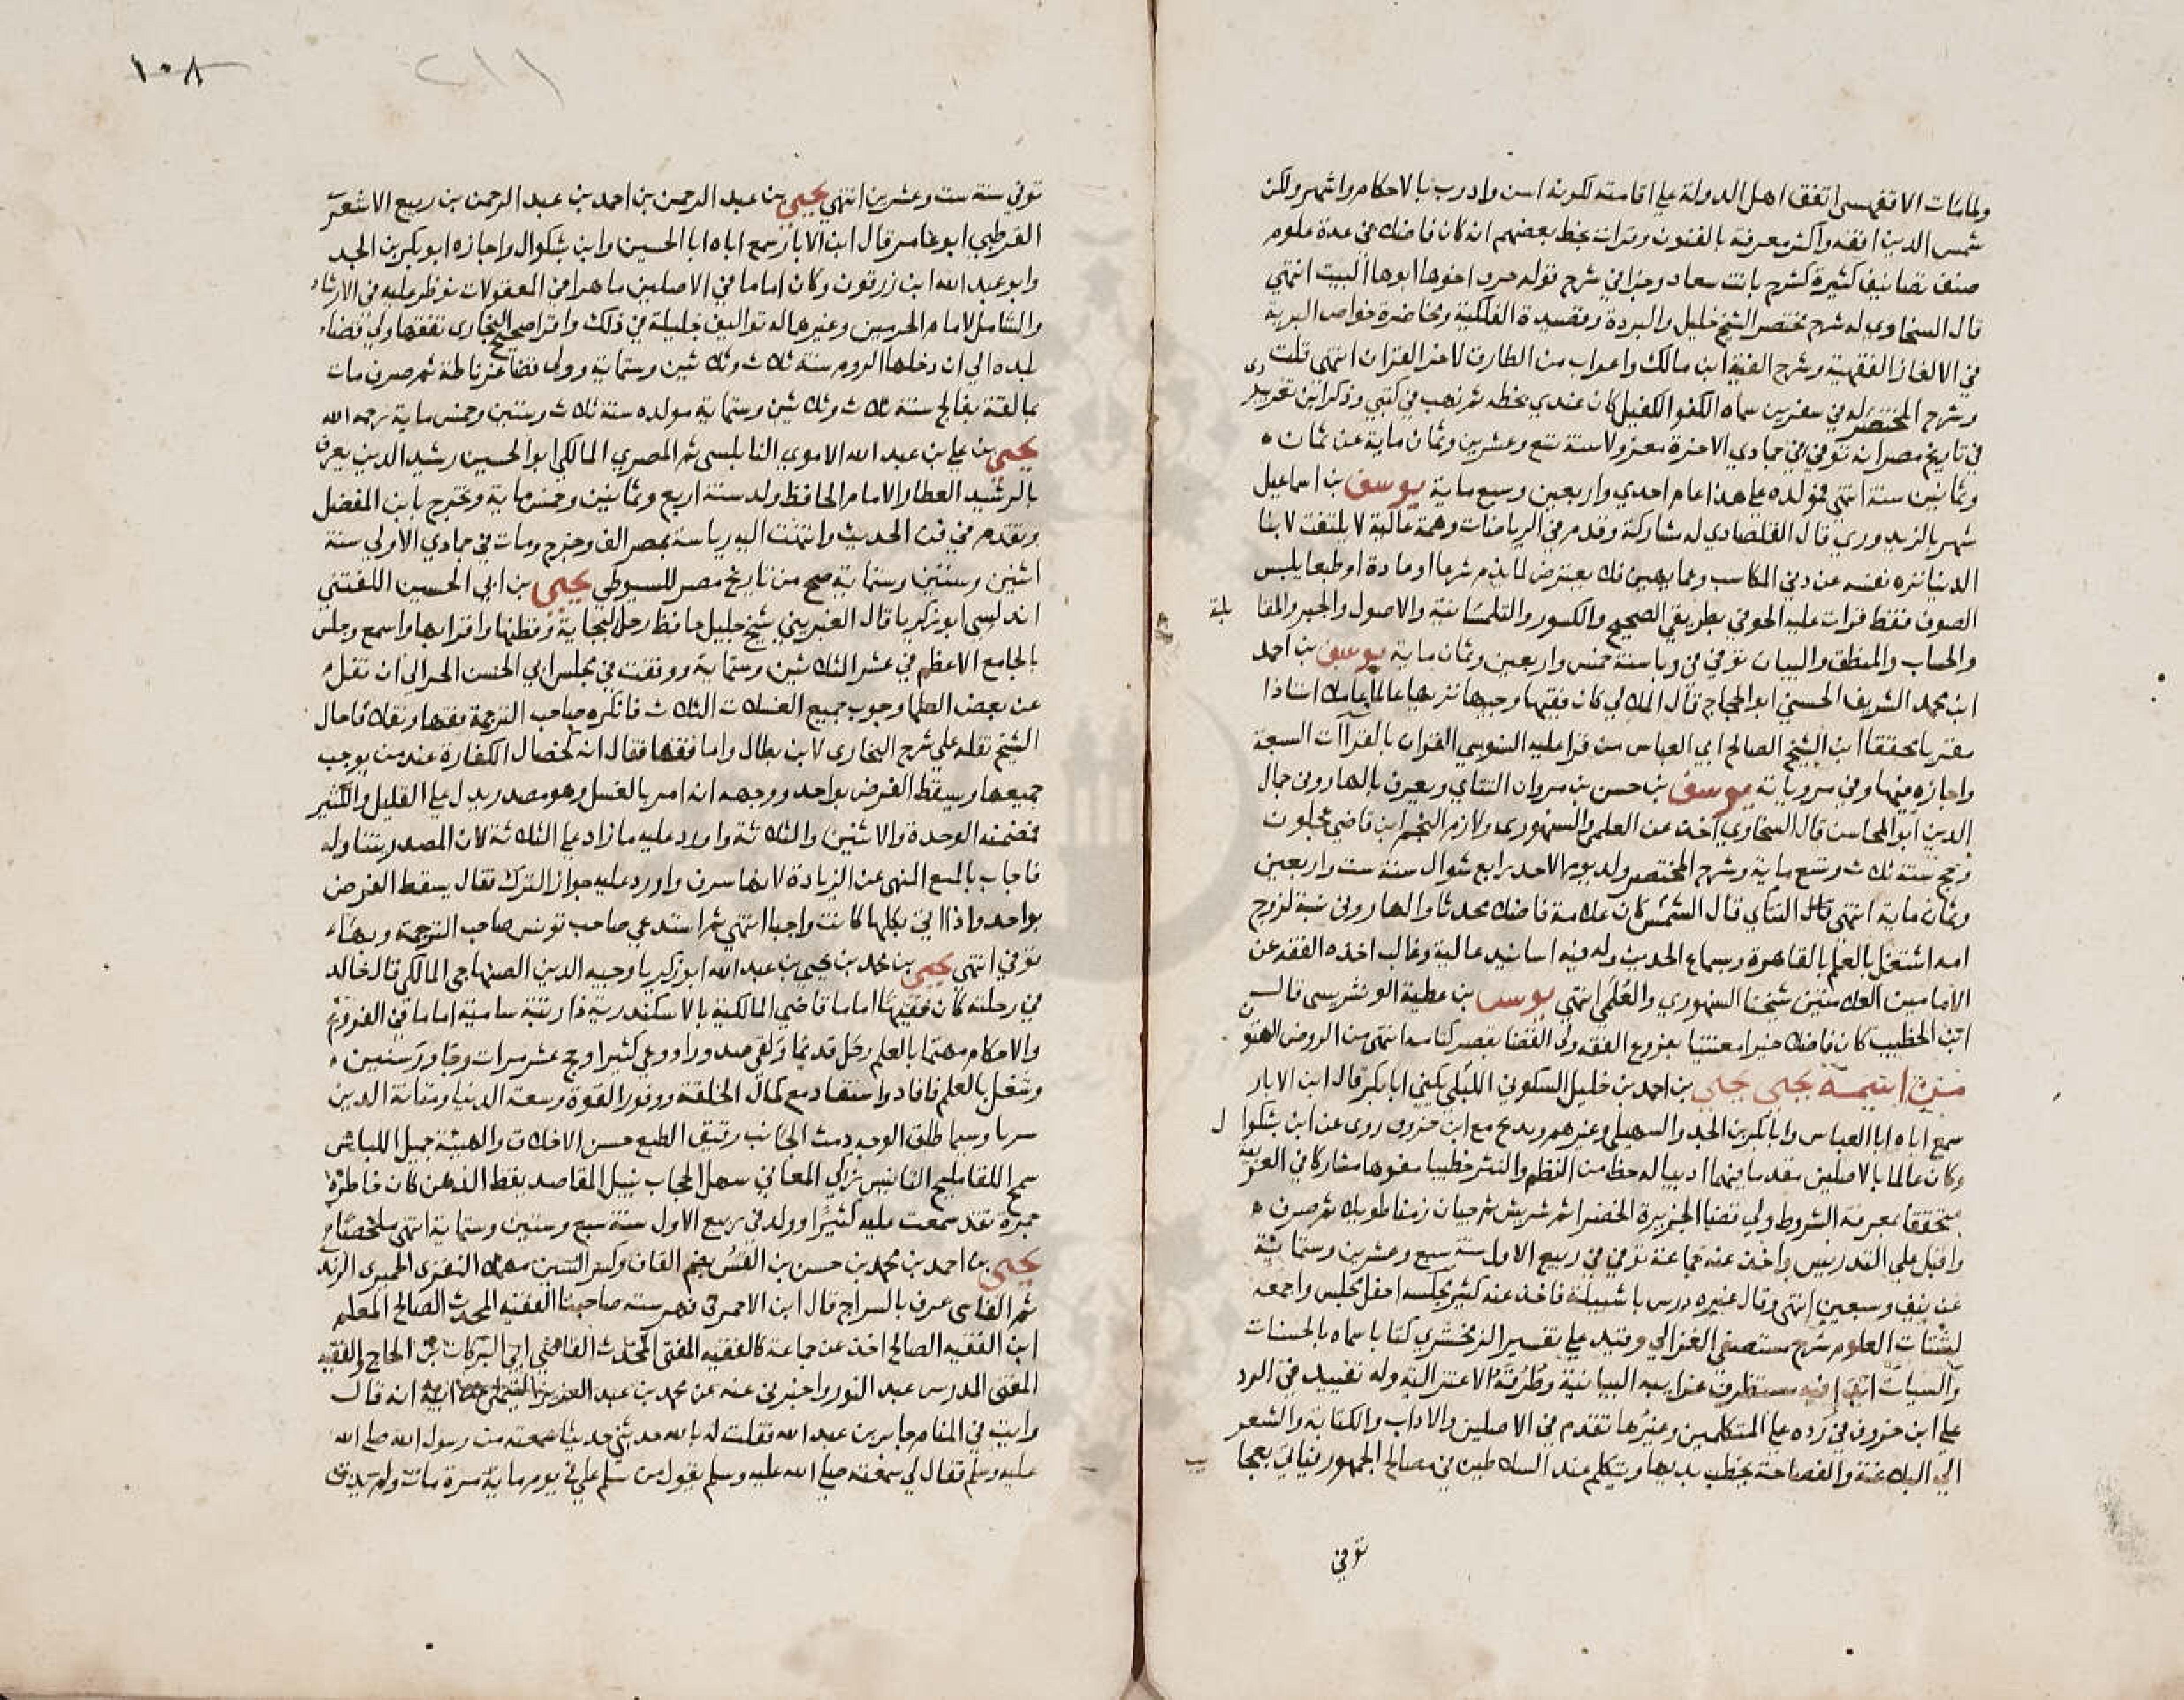 ولما مات الاقفهسي اتفق اهل الدولة على اقامته لكونه اسن وادرب بالاحكام واشهر ولكن
شمس الدين افقه واكثر معرفة بالفنون وقرات بخط بعضهم انه كان فاضلا في عدة علوم
صنف تصانيف كثيرة كشرح بانت سعاد وجزا في شرح قوله حرف اخوها ابوها البيت انتهى
قال السخاوي له شرح مختصر الشيخ خليل والبردة وقصيدة الفلكية ومحاضرة خواص البرية
في الالغاز الفقهية وشرح الفية ابن مالك واعراب من الطارق لاخر القران انتهى قلت
وشرح المختصر له في سفرين سماه الكفو الكفيل كان عندي بخطه ثم نهب في كتبي وذكر ابن تغري بردى
في تاريخ مصر انه توفي في جمادي الاخرة معزولا سنة تسع وعشرين وثمان ماية عن ثمان
وثمانين سنة انتهى فمولده على هذا عام احدي واربعين وسبع ماية يوسف بن اسماعيل
شهر بالزيدوري قال القلصادي له مشاركة وقدم في الرياضات وهمة عالية لا يلتفت لابنا
الدنيا نزه نفسه عن دني المكاسب وعما يهين فلا يعترض لما يذم شرعا او عادة او طبعا يلبس
الصوف فقط قرات عليه الحوفي بطريقي الصحيح والكسور والتلمسانية والاصول والجبر والمقا بلة
والحساب والمنطق والبيان توفي في وبا سنة خمس واربعين وثمان ماية يوسف بن احمد
ابن محمد الشريف الحسني ابو الحجاج قال الملالي كان فقيها وجيها نزيها عالما عاملا استاذا
مقريا محققا ابن الشيخ الصالح ابي العباس من قرا عليه السنوسي القران بالقراآت السبعة
واجازه فيها وفي مروياته يوسف بن حسن بن مروان التتاي ويعرف بالهاروني جمال
الدين ابو المحاسن قال السخاوي اخذ عن العلمي والسنهوري ولازم النجم ابن قاضي عجلون
وحج سنة ثلاث وتسع ماية وشرح المختصر ولد يوم الاحد رابع شوال سنة ست واربعين
وثمان ماية انتهى قال التتاي قال الشمس كان علامة فاضلا محدثا والهاروني نسبة لزوج
امه اشتغل بالعلم بالقاهرة وسماع الحديث وله فيه اسانيد عالية وغالب اخذه الفقه عن
الامامين العلامتين شيخنا السنهوري والعلمي انتهى يوسف بن عطية الونشريسي قال
ابن الخطيب كان فاضلا خيرا معتنيا بفروع الفقه ولي القضا بقصر كتامة انتهى من الروض الهتون
من اسمه يحيى يحيى بن احمد بن خليل السكوني اللبلي يكني ابا بكر قال ابن الابار
سمع اباه ابا العباس وابا بكر بن الجد والسهيلي وغيرهم وتدبج مع ابن خروف روى عن ابن بشكوا ل
وكان عالما بالاصلين مقدما فيهما اديبا له حظ من النظم والنثر خطيبا مفوها مشاركا في العربية
متحققا بمعرفة الشروط ولي قضا الجزيرة الخضرا ثم شريش ثم جيان زمنا طويلا ثم صرف
واقبل على التدريس واخذ عنه جماعة توفي في ربيع الاول سنة سبع وعشرين وستماية
عن نيف وسبعين انتهى وقال غيره درس باشبيلية فاخذ عنه كثير مجلسه احفل مجلس واجمعه
لشتات العلوم شرح مستصفى الغزالي وقيد على تفسير الزمخشري كتابا سماه بالحسنات
والسيات مستظرف غرايبه البيانية وطرقه الاعتزالية وله تقييد في الرد
على ابن خروف في رده على المتكلمين وغيرها تقدم في الاصلين والاداب والكتابة والشعر
الي البلاغة والفصاحة يخطب بديها ويتكلم عند السلاطين في مصالح الجمهور فياتي بعجا يب
توفي
١٠٨
٢١١
توفي سنة ست وعشرين انتهى يحيى بن عبد الرحمن بن احمد بن عبد الرحمن بن ربيع الاشعري
القرطبي ابو عامر قال ابن الابار سمع اباه ابا الحسين وابن بشكوال واجازه ابو بكر بن الجد
وابو عبد الله ابن زرقون وكان اماما في الاصلين ماهرا في المعقولات نوظر عليه في الارشاد
والشامل لامام الحرمين وغيرها له تواليف جليلة في ذلك واقرا صحيح البخاري تفقها وولي قضاء
بلده الى ان دخلها الروم سنة ثلاث وثلاثين وستماية وولي قضا غرناطة ثم صرف مات
بمالقة بفالج سنة ثلاث وثلاثين وستماية مولده سنة ثلاث وستين وخمس ماية رحمه الله
يحيى بن علي بن عبد الله الاموي النابلسي ثم المصري المالكي ابو الحسين رشيد الدين يعرف
بالرشيد العطار الامام الحافظ ولد سنة اربع وثمانين وخمس ماية وتخرج بابن المفضل
وتقدم في فن الحديث وانتهت اليه رياسة بمصر الف وخرج ومات في جمادي الاولي سنة
اثنين وستين وستماية صح من تاريخ مصر للسيوطي يحيى بن ابي الحسين اللفتني
اندلسي ابو زكريا قال الغبريني شيخ جليل حافظ رحل لبجاية وقطنها واقرا بها واسمع وجلس
بالجامع الاعظم في عشر الثلاثين وستماية ووقعت في مجلس ابي الحسن الحرالي ان نقل
عن بعض العلما وجوب جميع الغسلات الثلاث فانكره صاحب الترجمة فقها ونقلا فاحال
الشيخ نقله على شرح البخاري لابن بطال واما فقها فقال انه كخصال الكفارة عند من يوجب
جميعها ويسقط الفرض بواحد ووجهه انه امر بالغسل وهو مصدر يدل على القليل والكثير
فتضمنه الوحدة والاثنين والثلاثة واورد عليه ما زاد على الثلاثة لان المصدر يتناوله
فاجاب بالمنع النهي عن الزيادة لانها سرف واورد عليه جواز الترك فقال يسقط الفرض
بواحد واذا اتي بكلها كانت واجبا انتهى ثم استدعي صاحب تونس صاحب الترجمة وبها
توفي انتهى يحيى بن محمد بن يحيى بن عبد الله ابو زكريا وجيه الدين الصنهاجي المالكي قال خالد
في رحلته كان فقيها اماما قاضي المالكية بالاسكندرية ذا رتبة سامية اماما في الفروع
والاحكام مهتما بالعلم رحل قديما ولقي صدورا وروي كثيرا وحج عشر مرات وجاور سنين
وشغل بالعلم فافاد واستفاد مع كمال الخلقة ووفور القوة وسعة الدنيا ومتانة الدين
سريا وسيما طلق الوجه دمث الجانب رقيق الطبع حسن الاخلاق والهيئة جميل اللباس
سمح اللقا مليح التانيس زاكي المعاني سهل الحجاب نبيل المقاصد يقظ الذهن كان خاطره
جمرة تقد سمعت عليه كثيرا وولد في ربيع الاول سنة سبع وستين وستماية انتهى ملخصا
يحيى بن احمد بن محمد بن حسن بن القس بضم القاف وكسر السين مهملا النفزي الحميري الرندي
ثم الفاسي عرف بالسراج قال ابن الاحمر في فهرسته صاحبنا الفقيه المحدث الصالح المعلم
ابن الفقيه الصالح اخذ عن جماعة كالفقيه المفتي المحدث القاضي ابي البركات بن الحاج والفقيه
المفتي المدرس عبد النور واخبرني عنه عن محمد بن عبد العزيز انه قال
رايت في المنام جابر بن عبد الله فقلت له بالله حدثني حديثا سمعته من رسول الله صلى الله
عليه وسلم فقال لي سمعته صلى الله عليه وسلم يقول من سلم علي في يوم ماية مرة مات ولم